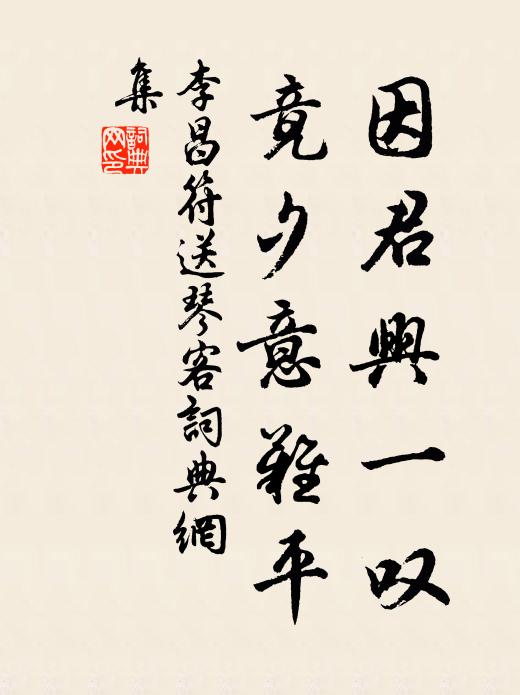 因君興一叹
竟夕意難平
李昌符送琴客詞典網
集
詞典
网印